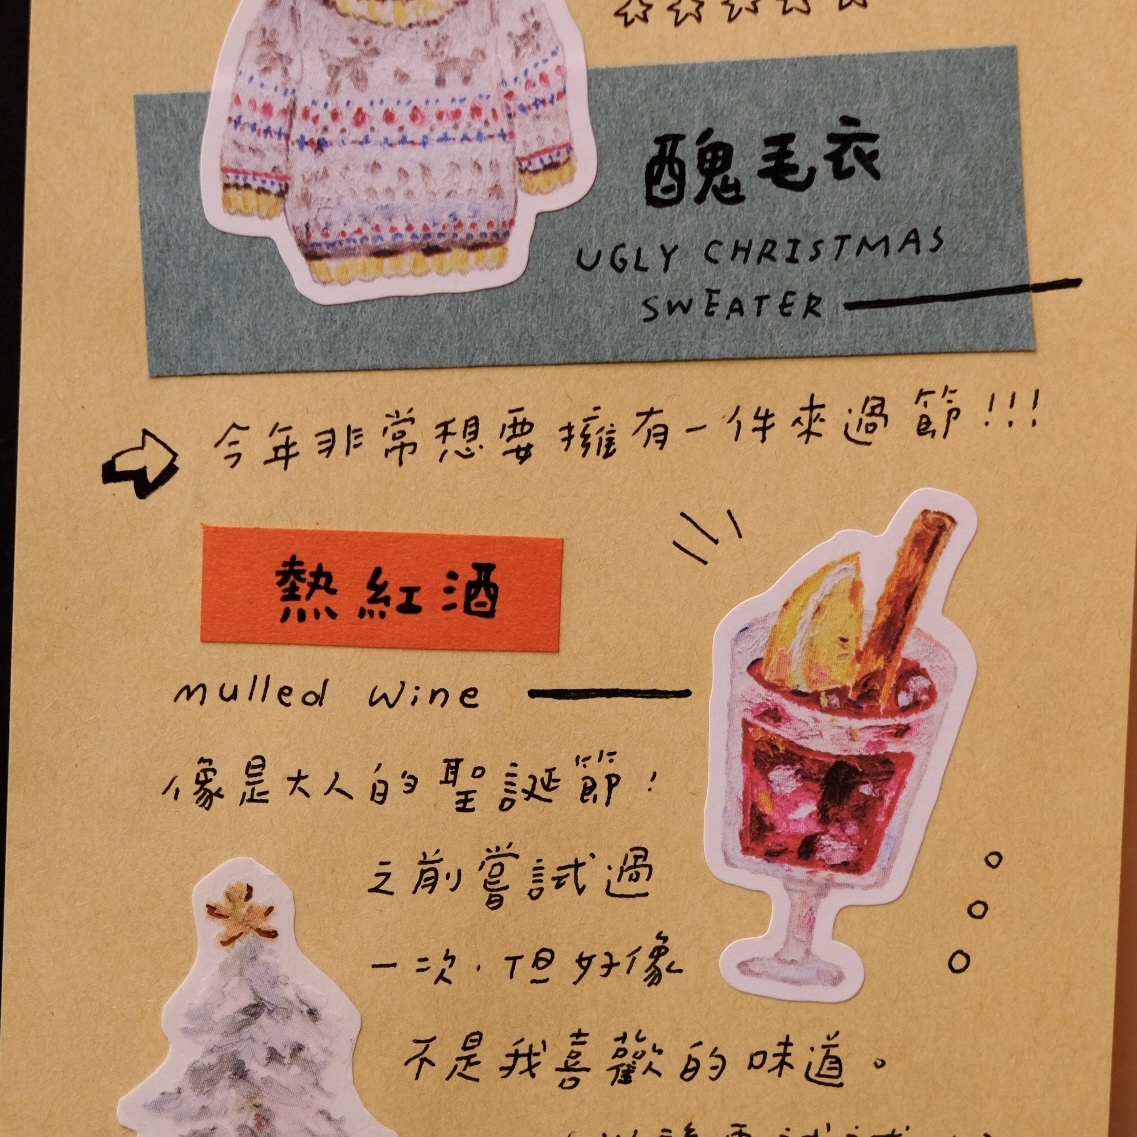 醜毛衣
UGLY CHRISTMAS
SWEATER
今年非常想要擁有一件來過節!!!
熱紅酒
mulled wine
像是大人的聖誕節!
之前嘗試過
一次.但好像
不是我喜歡的味道。